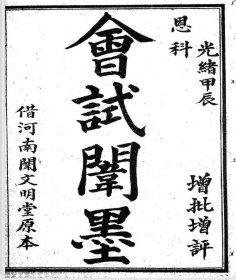 光緒甲辰
恩科
增批增評
會試闈墨
借河南闈文明堂原本